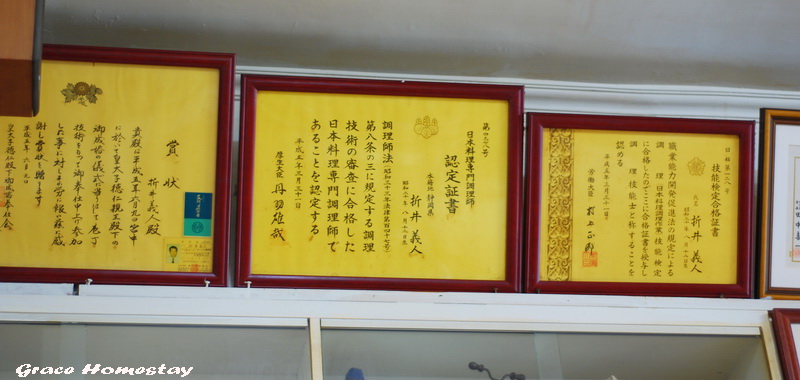 賞状
折井義人殿
貴殿は平成五年六月九日宮中
に於いて皇太子徳仁親王殿下の
御成婚の儀式に際して庖丁
技術をもって御奉仕申し上げ参加
した事に対しその労に報い茲に感
謝し賞状を贈ります
平成五年六月九日
日本料理専門調理師
認定証書
本籍地 静岡県
折井義人
調理師法(昭和三十三年法律第百四十七号)
第八条の三に規定する調理
技術の審査に合格した
日本料理専門調理師で
あることを認定する
平成五年三月三十一日
厚生大臣 丹羽雄哉
技能検定合格証書
氏名 折井義人
職業能力開発促進法の規定による
調理(日本料理調理作業)技能検定
に合格したのでここに合格証書を授与し
調理技能士と称することを
認める
平成五年三月三十一日
労働大臣 村上正邦
Grace Homestay